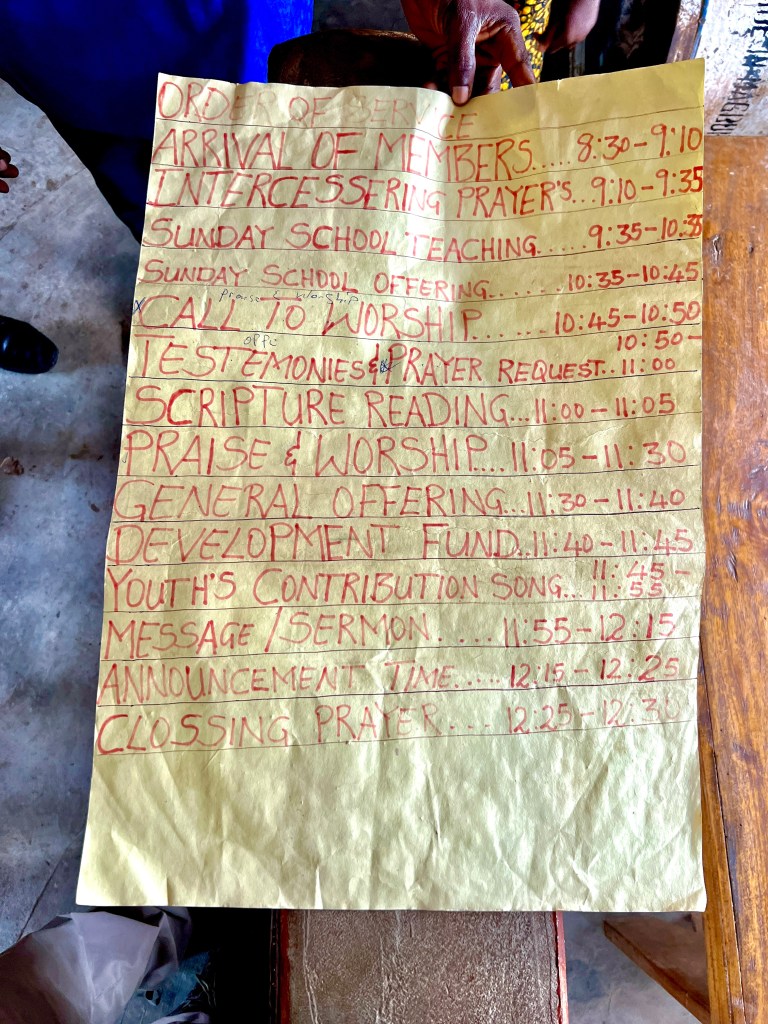 ORDER OF SERVICE
ARRIVAL OF MEMBERS..... 8:30-9:10
INTERCESSERING PRAYER'S... 9:10-9:35
SUNDAY SCHOOL TEACHING..... 9:35-10:35
SUNDAY SCHOOL OFFERING....... 10:35-10:45
praise & worship
X CALL TO WORSHIP....... 10:45-10:50
offe
10:50-
TESTEMONIES & PRAYER REQUEST.. 11:00
SCRIPTURE READING... 11:00-11:05
PRAISE & WORSHIP.... 11:05-11:30
GENERAL OFFERING... 11:30-11:40
DEVELOPMENT FUND.. 11:40-11:45
11:45-
YOUTH'S CONTRIBUTION SONG... 11:55
MESSAGE/SERMON. .... 11:55-12:15
ANNOUNCEMENT TIME..... 12:15-12:25
CLOSSING PRAYER... .. 12:25-12:30